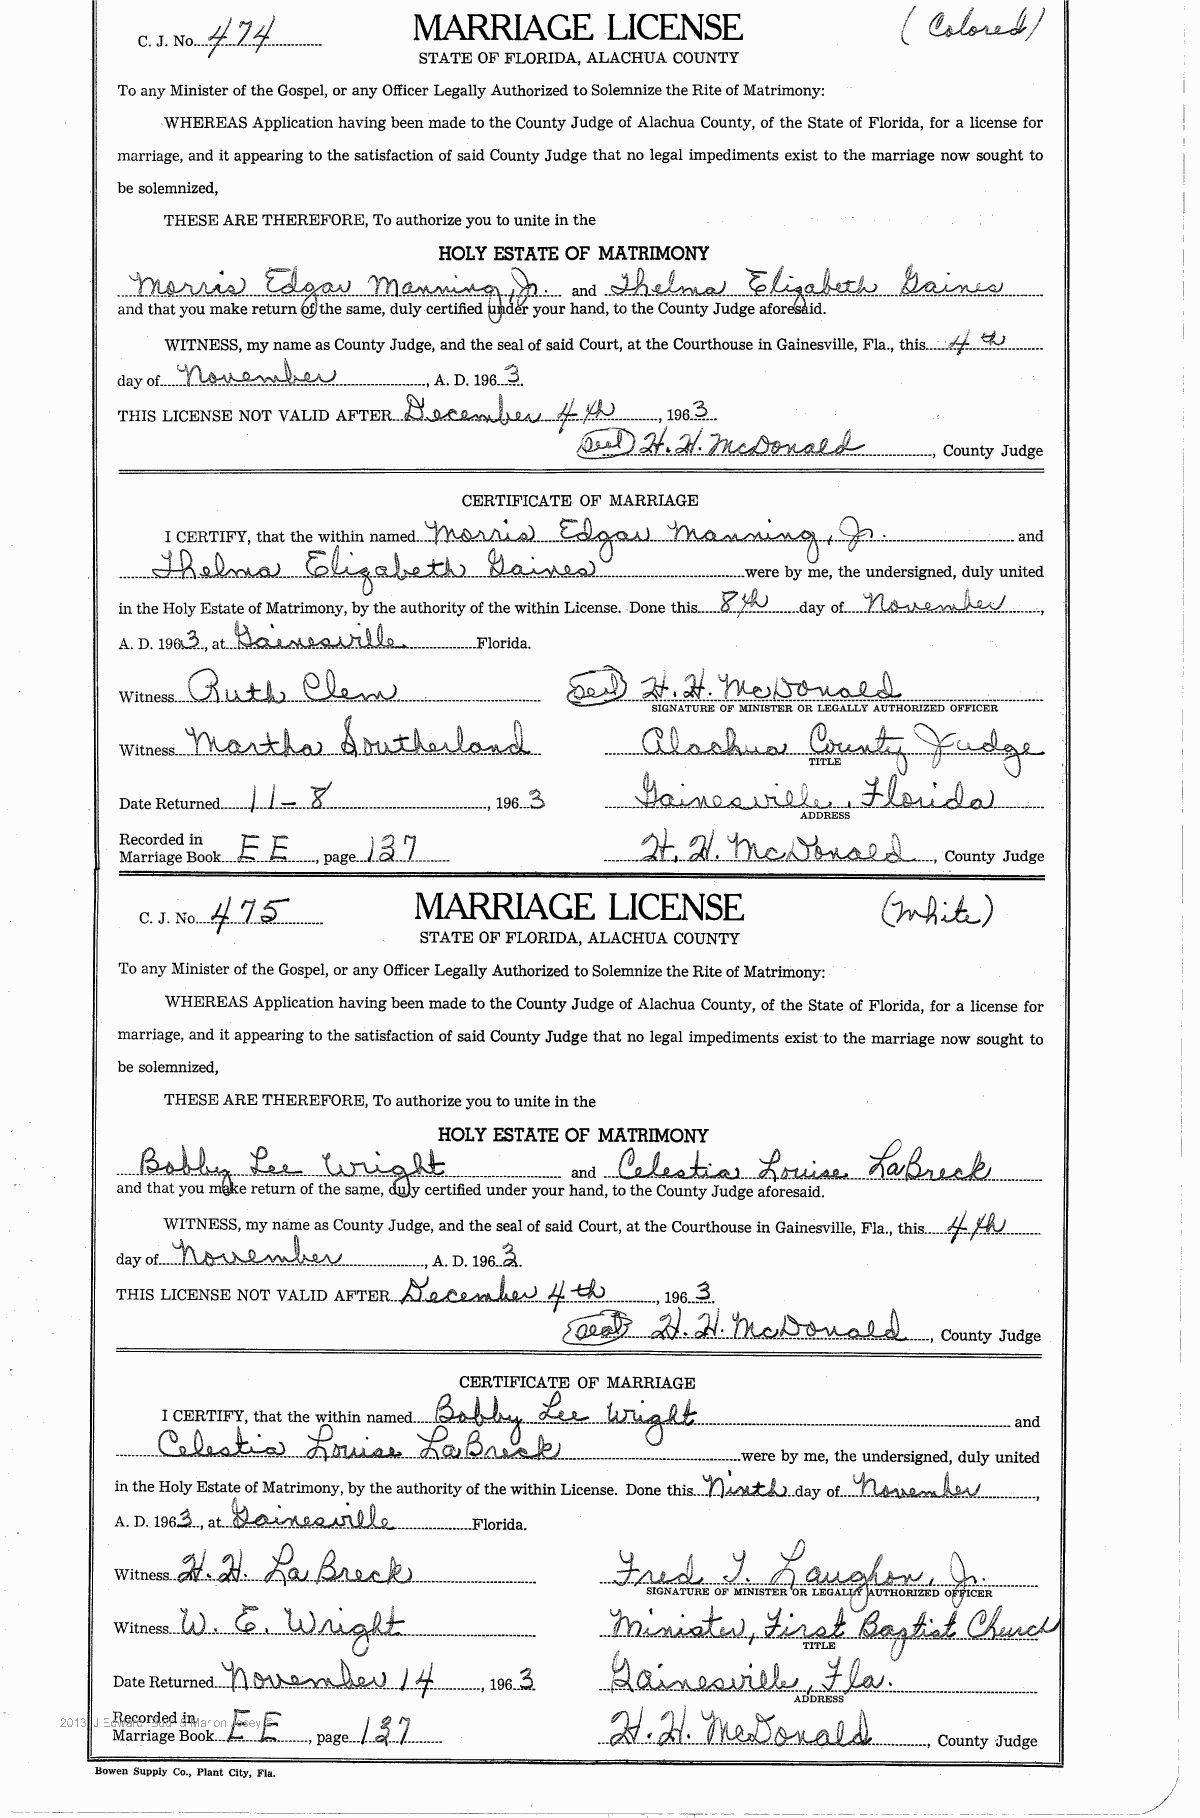 C. J. No. 474 MARRIAGE LICENSE (Colored)
STATE OF FLORIDA, ALACHUA COUNTY
To any Minister of the Gospel, or any Officer Legally Authorized to Solemnize the Rite of Matrimony:
WHEREAS Application having been made to the County Judge of Alachua County, of the State of Florida, for a license for
marriage, and it appearing to the satisfaction of said County Judge that no legal impediments exist to the marriage now sought to
be solemnized,
THESE ARE THEREFORE, To authorize you to unite in the
HOLY ESTATE OF MATRIMONY
Morris Edgar Manning, Jr. and Thelma Elizabeth Gaines
and that you make return of the same, duly certified under your hand, to the County Judge aforesaid.
WITNESS, my name as County Judge, and the seal of said Court, at the Courthouse in Gainesville, Fla., this 4th
day of November, A. D. 1963.
THIS LICENSE NOT VALID AFTER December 4th, 1963.
(seal) H. H. McDonald, County Judge
CERTIFICATE OF MARRIAGE
I CERTIFY, that the within named Morris Edgar Manning, Jr. and
Thelma Elizabeth Gaines were by me, the undersigned, duly united
in the Holy Estate of Matrimony, by the authority of the within License. Done this 8th day of November,
A. D. 1963, at Gainesville Florida.
Witness Ruth Clem (seal) H. H. McDonald
SIGNATURE OF MINISTER OR LEGALLY AUTHORIZED OFFICER
Witness Martha Southerland Alachua County Judge
TITLE
Date Returned 11-8, 1963 Gainesville, Florida
ADDRESS
Recorded in
Marriage Book EE, page 137 H. H. McDonald, County Judge
C. J. No. 475 MARRIAGE LICENSE (White)
STATE OF FLORIDA, ALACHUA COUNTY
To any Minister of the Gospel, or any Officer Legally Authorized to Solemnize the Rite of Matrimony:
WHEREAS Application having been made to the County Judge of Alachua County, of the State of Florida, for a license for
marriage, and it appearing to the satisfaction of said County Judge that no legal impediments exist to the marriage now sought to
be solemnized,
THESE ARE THEREFORE, To authorize you to unite in the
HOLY ESTATE OF MATRIMONY
Bobby Lee Wright and Celestia Louise LaBreck
and that you make return of the same, duly certified under your hand, to the County Judge aforesaid.
WITNESS, my name as County Judge, and the seal of said Court, at the Courthouse in Gainesville, Fla., this 4th
day of November, A. D. 1963.
THIS LICENSE NOT VALID AFTER December 4th, 1963.
(seal) H. H. McDonald, County Judge
CERTIFICATE OF MARRIAGE
I CERTIFY, that the within named Bobby Lee Wright and
Celestia Louise LaBreck were by me, the undersigned, duly united
in the Holy Estate of Matrimony, by the authority of the within License. Done this Ninth day of November,
A. D. 1963, at Gainesville Florida.
Witness H. H. LaBreck Fred T. Laughon, Jr.
SIGNATURE OF MINISTER OR LEGALLY AUTHORIZED OFFICER
Witness W. E. Wright Minister, First Baptist Church
TITLE
Date Returned November 14, 1963 Gainesville, Fla.
ADDRESS
Recorded in
2013 J Edward
Marriage Book EE, page 137 H. H. McDonald, County Judge
Bowen Supply Co., Plant City, Fla.